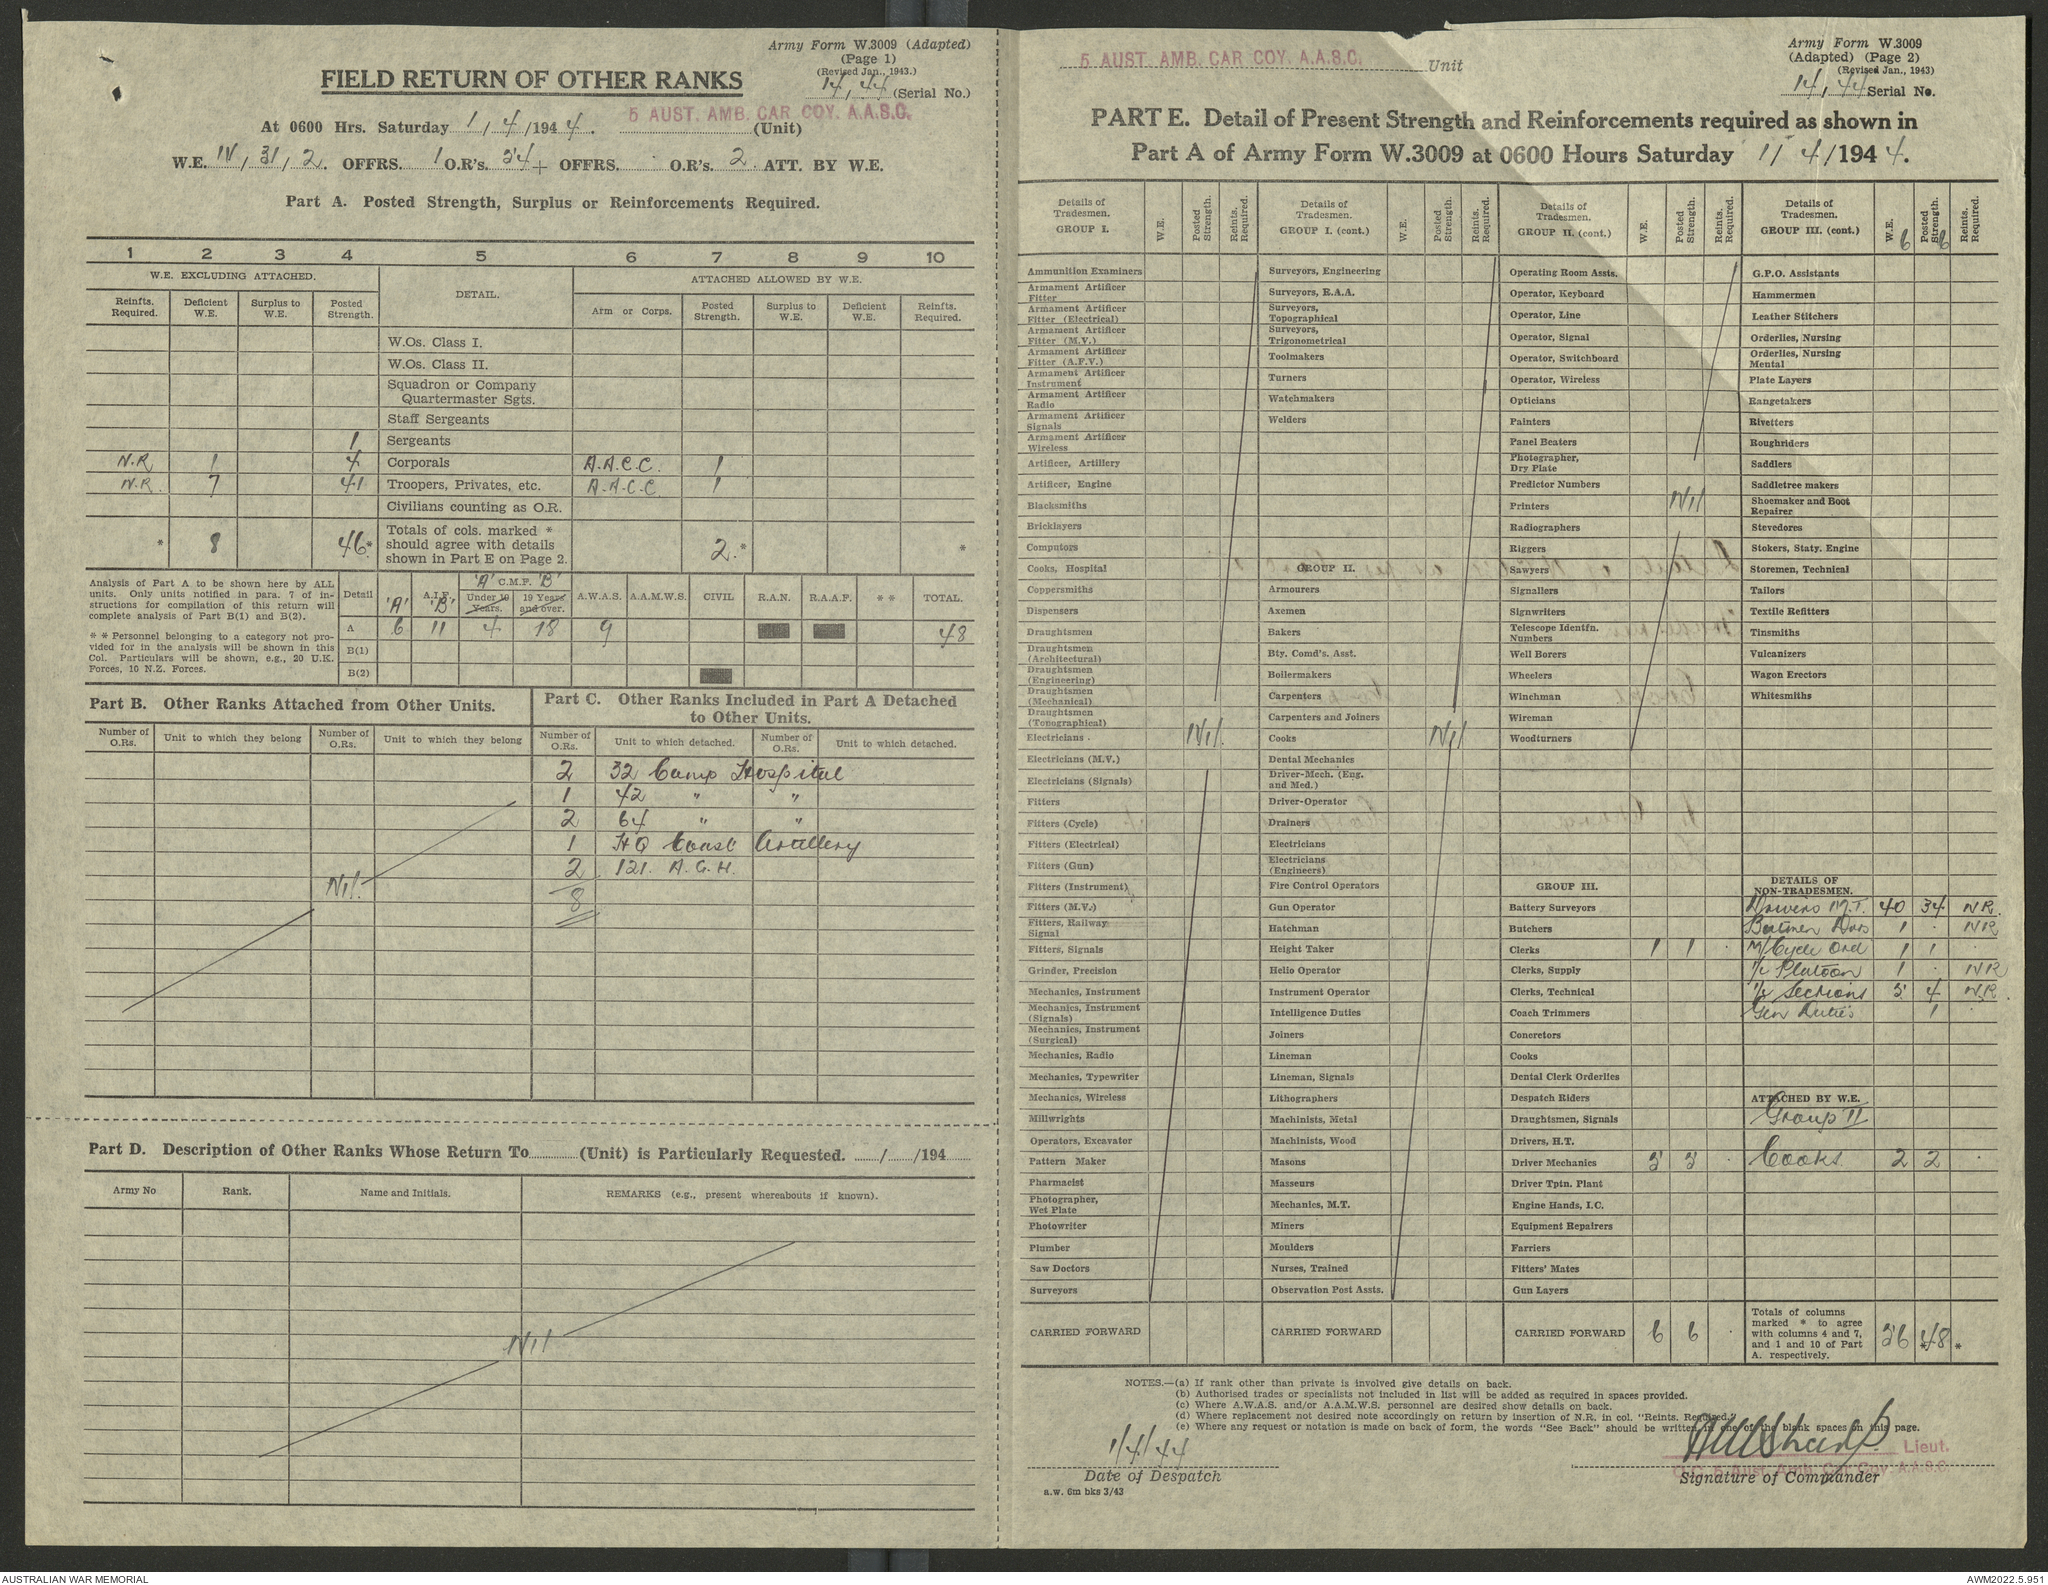 Army Form W.3009 (Adapted)
(Page 1)
(Revised Jan., 1943.)
FIELD RETURN OF OTHER RANKS
14, 44 (Serial No.)
At 0600 Hrs. Saturday 1/4/1944. 5 AUST. AMB. CAR COY. A.A.S.C. (Unit)
W.E. IV, 31, 2. OFFRS. 1 O.R's. 54 + OFFRS. . O.R's. 2. ATT. BY W.E.
Part A. Posted Strength, Surplus or Reinforcements Required.
1 2 3 4 5 6 7 8 9 10
W.E. EXCLUDING ATTACHED. DETAIL. ATTACHED ALLOWED BY W.E.
Reinfts. Required. Deficient W.E. Surplus to W.E. Posted Strength. Arm or Corps. Posted Strength. Surplus to W.E. Deficient W.E. Reinfts. Required.
W.Os. Class I.
W.Os. Class II.
Squadron or Company
Quartermaster Sgts.
Staff Sergeants
1 Sergeants
N.R 1 4 Corporals A.A.C.C. 1
N.R. 7 41 Troopers, Privates, etc. A.A.C.C 1
Civilians counting as O.R.
* 8 46* Totals of cols. marked * should agree with details shown in Part E on Page 2. 2.* *
Analysis of Part A to be shown here by ALL
units. Only units notified in para. 7 of in-
structions for compilation of this return will
complete analysis of Part B(1) and B(2).
* * Personnel belonging to a category not pro-
vided for in the analysis will be shown in this
Col. Particulars will be shown, e.g., 20 U.K.
Forces, 10 N.Z. Forces.
Detail A.I.F. 'A' 'B' 'A' C.M.F. 'B' Under 19 Years. 19 Years and over. A.W.A.S. A.A.M.W.S. CIVIL R.A.N. R.A.A.F. * * TOTAL.
A 6 11 4 18 9 48
B(1)
B(2)
Part B. Other Ranks Attached from Other Units.
Number of O.Rs. Unit to which they belong Number of O.Rs. Unit to which they belong
Nil.
Part C. Other Ranks Included in Part A Detached
to Other Units.
Number of O.Rs. Unit to which detached. Number of O.Rs. Unit to which detached.
2 32 Camp Hospital
1 42 " "
2 64 " "
1 HQ Coast Artillery
2 121. A.G.H.
8
Part D. Description of Other Ranks Whose Return To (Unit) is Particularly Requested. / /194
Army No Rank. Name and Initials. REMARKS (e.g., present whereabouts if known).
Nil
5 AUST. AMB. CAR COY. A.A.S.C. Unit
Army Form W.3009
(Adapted) (Page 2)
(Revised Jan., 1943)
14, 44 Serial No.
PART E. Detail of Present Strength and Reinforcements required as shown in
Part A of Army Form W.3009 at 0600 Hours Saturday 1/4/1944.
Details of Tradesmen. GROUP I. W.E. Posted Strength. Reints. Required.
Ammunition Examiners
Armament Artificer Fitter
Armament Artificer Fitter (Electrical)
Armament Artificer Fitter (M.V.)
Armament Artificer Fitter (A.F.V.)
Armament Artificer Instrument
Armament Artificer Radio
Armament Artificer Signals
Armament Artificer Wireless
Artificer, Artillery
Artificer, Engine
Blacksmiths
Bricklayers
Computors
Cooks, Hospital
Coppersmiths
Dispensers
Draughtsmen
Draughtsmen (Architectural)
Draughtsmen (Engineering)
Draughtsmen (Mechanical)
Draughtsmen (Topographical)
Electricians. Nil.
Electricians (M.V.)
Electricians (Signals)
Fitters
Fitters (Cycle)
Fitters (Electrical)
Fitters (Gun)
Fitters (Instrument)
Fitters (M.V.)
Fitters, Railway Signal
Fitters, Signals
Grinder, Precision
Mechanics, Instrument
Mechanics, Instrument (Signals)
Mechanics, Instrument (Surgical)
Mechanics, Radio
Mechanics, Typewriter
Mechanics, Wireless
Millwrights
Operators, Excavator
Pattern Maker
Pharmacist
Photographer, Wet Plate
Photowriter
Plumber
Saw Doctors
Surveyors
CARRIED FORWARD
Details of Tradesmen. GROUP I. (cont.) W.E. Posted Strength. Reints. Required.
Surveyors, Engineering
Surveyors, R.A.A.
Surveyors, Topographical
Surveyors, Trigonometrical
Toolmakers
Turners
Watchmakers
Welders
GROUP II.
Armourers
Axemen
Bakers
Bty. Comd's. Asst.
Boilermakers
Carpenters
Carpenters and Joiners
Cooks Nil
Dental Mechanics
Driver-Mech. (Eng. and Med.)
Driver-Operator
Drainers
Electricians
Electricians (Engineers)
Fire Control Operators
Gun Operator
Hatchman
Height Taker
Helio Operator
Instrument Operator
Intelligence Duties
Joiners
Lineman
Lineman, Signals
Lithographers
Machinists, Metal
Machinists, Wood
Masons
Masseurs
Mechanics, M.T.
Miners
Moulders
Nurses, Trained
Observation Post Assts.
CARRIED FORWARD
Details of Tradesmen. GROUP II. (cont.) W.E. Posted Strength. Reints. Required.
Operating Room Assts.
Operator, Keyboard
Operator, Line
Operator, Signal
Operator, Switchboard
Operator, Wireless
Opticians
Painters
Panel Beaters
Photographer, Dry Plate
Predictor Numbers
Printers Nil
Radiographers
Riggers
Sawyers
Signallers
Signwriters
Telescope Identfn. Numbers
Well Borers
Wheelers
Winchman
Wireman
Woodturners
GROUP III.
Battery Surveyors
Butchers
Clerks 1 1 .
Clerks, Supply
Clerks, Technical
Coach Trimmers
Concretors
Cooks
Dental Clerk Orderlies
Despatch Riders
Draughtsmen, Signals
Drivers, H.T.
Driver Mechanics 5 5 .
Driver Tptn. Plant
Engine Hands, I.C.
Equipment Repairers
Farriers
Fitters' Mates
Gun Layers
CARRIED FORWARD 6 6 .
Details of Tradesmen. GROUP III. (cont.) W.E. 6 Posted Strength. 6 Reints. Required.
G.P.O. Assistants
Hammermen
Leather Stitchers
Orderlies, Nursing
Orderlies, Nursing Mental
Plate Layers
Rangetakers
Rivetters
Roughriders
Saddlers
Saddletree makers
Shoemaker and Boot Repairer
Stevedores
Stokers, Staty. Engine
Storemen, Technical
Tailors
Textile Refitters
Tinsmiths
Vulcanizers
Wagon Erectors
Whitesmiths
DETAILS OF NON-TRADESMEN.
Drivers M.T. 40 34 NR.
Batmen Dvrs 1 . NR
M/Cycle Ord 1 1 .
I/c Platoon 1 . NR
I/c Sections 5 4 N.R.
Gen Duties 1 .
ATTACHED BY W.E.
Group II
Cooks 2 2 .
Totals of columns marked * to agree with columns 4 and 7, and 1 and 10 of Part A. respectively. 56 *48 *
NOTES.—(a) If rank other than private is involved give details on back.
(b) Authorised trades or specialists not included in list will be added as required in spaces provided.
(c) Where A.W.A.S. and/or A.A.M.W.S. personnel are desired show details on back.
(d) Where replacement not desired note accordingly on return by insertion of N.R. in col. "Reints. Required."
(e) Where any request or notation is made on back of form, the words "See Back" should be written in one of the blank spaces on this page.
1/4/44
Date of Despatch
Lieut.
O.C. 5 Aust. Amb. Car Coy. A.A.S.C.
Signature of Commander
a.w. 6m bks 3/43
AUSTRALIAN WAR MEMORIAL
AWM2022.5.951